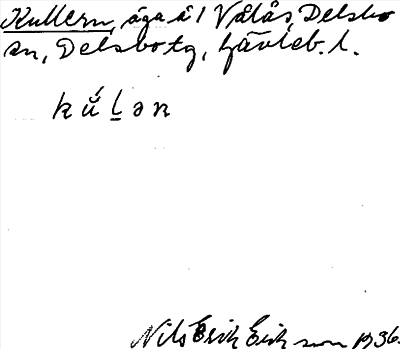 Kullern, äga å 1 Vålås, Delsbo
sn, Delsbo tg, Gävleb. l.
kúḷən
Nils Erik Eriksson 1936.